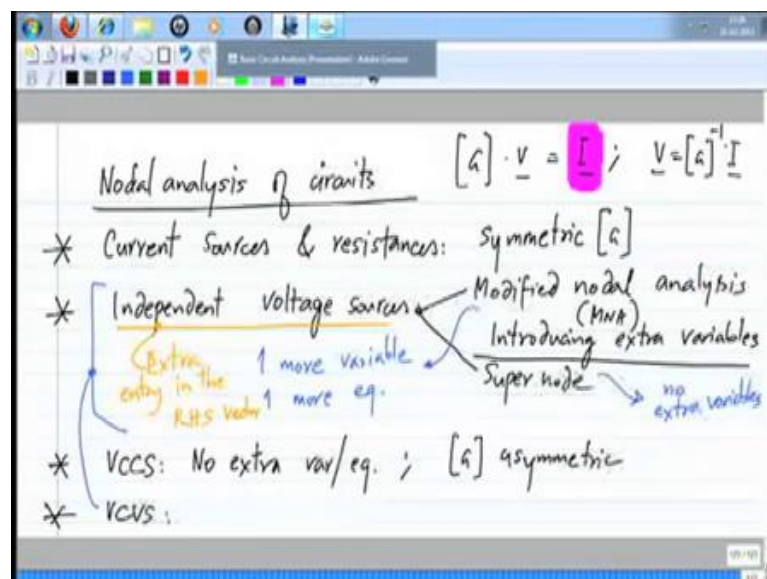 Basic Circuit Analysis (Presentation) - Adobe Connect
B I
Nodal analysis of circuits
[G] · V = I ; V = [G]⁻¹ · I
* Current Sources & resistances: Symmetric [G]
* Independent Voltage sources
Modified nodal analysis
(MNA)
Introducing extra variables
Super node
no
extra variables
Extra
entry in the
RHS vector
1 more variable
1 more eq.
* VCCS: No extra var/eq. ; [G] asymmetric
* VCVS: